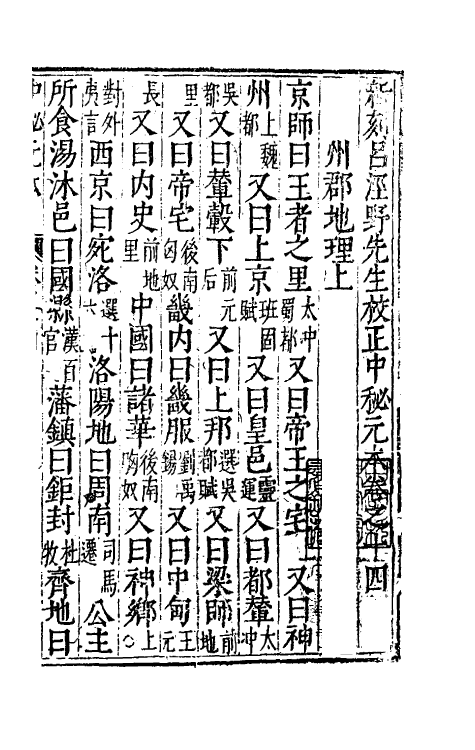 新刻呂涇野先生校正中秘元本卷之十四
州郡地理上
京師曰王者之里太冲蜀都又曰帝王之宅又曰神
州上魏都又曰上京班固賦又曰皇邑靈運又曰都輦太冲
吳都又曰輦轂下前元后又曰上邦選吳都賦又曰梁師前地
里又曰帝宅後南匈奴畿内曰畿服劉禹錫又曰中甸王元
長又曰内史前地里中國曰諸華後南匈奴又曰神鄉上○
對外夷言西京曰宛洛選十六洛陽地曰周南司馬遷公主
所食湯沐邑曰國縣漢百官藩鎮曰鉅封杜牧齊地曰